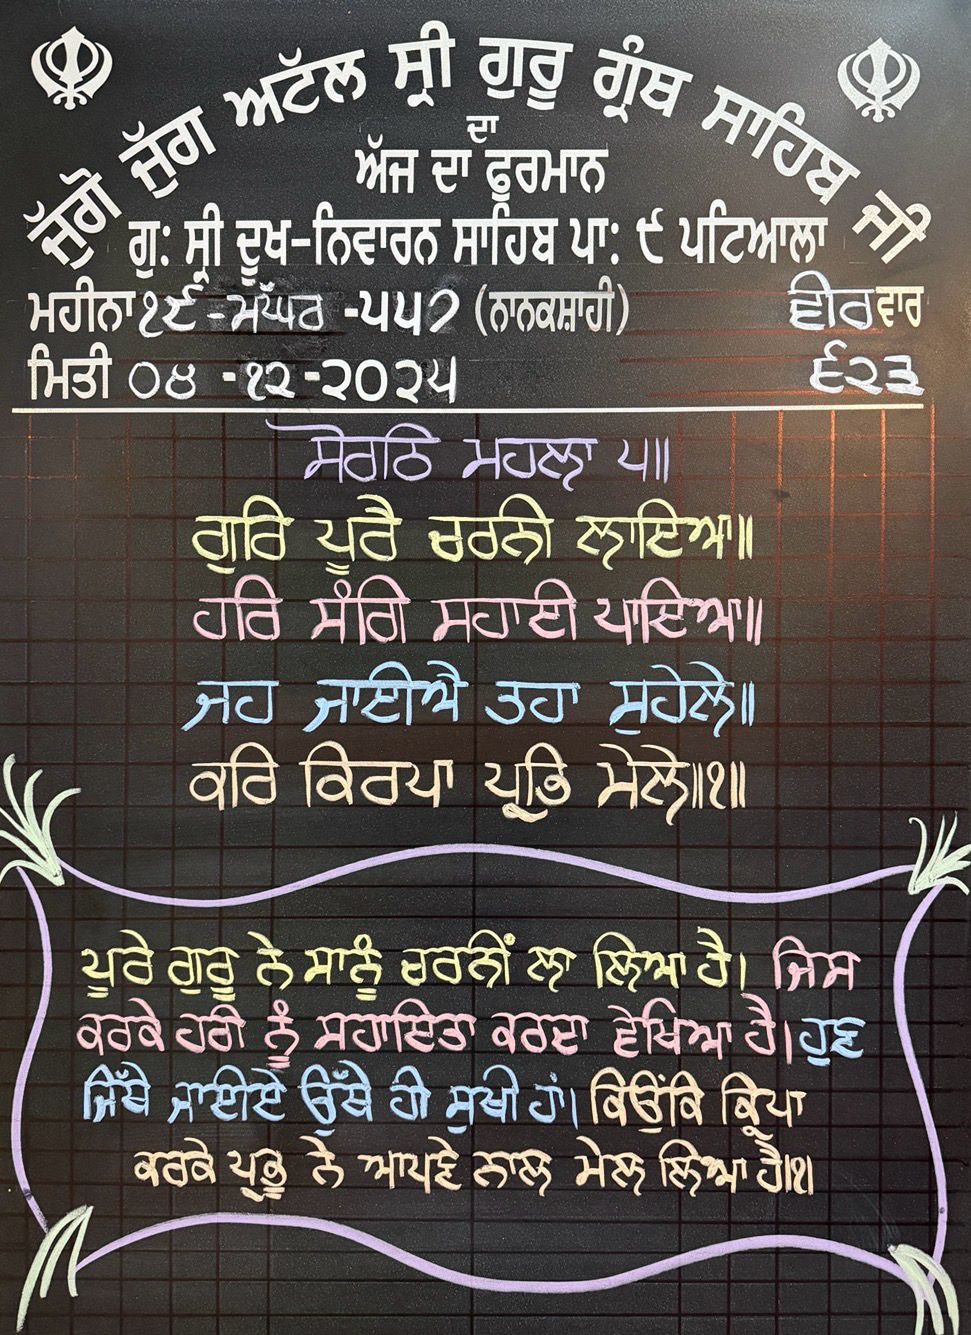 ਜੁੱਗੋ ਜੁੱਗ ਅਟੱਲ ਸ੍ਰੀ ਗੁਰੂ ਗ੍ਰੰਥ ਸਾਹਿਬ ਜੀ
ਦਾ
ਅੱਜ ਦਾ ਫੁਰਮਾਨ
ਗੁ: ਸ੍ਰੀ ਦੂਖ-ਨਿਵਾਰਨ ਸਾਹਿਬ ਪਾ: ੯ ਪਟਿਆਲਾ
ਮਹੀਨਾ ੧੯-ਮੱਘਰ -੫੫੭ (ਨਾਨਕਸ਼ਾਹੀ) ਵੀਰਵਾਰ
ਮਿਤੀ ੦੪ -੧੨ -੨੦੨੫ ੬੨੩
ਸੋਰਠਿ ਮਹਲਾ ੫॥
ਗੁਰਿ ਪੂਰੈ ਚਰਨੀ ਲਾਇਆ॥
ਹਰਿ ਸੰਗਿ ਸਹਾਈ ਪਾਇਆ॥
ਜਹ ਜਾਈਐ ਤਹਾ ਸੁਹੇਲੇ॥
ਕਰਿ ਕਿਰਪਾ ਪ੍ਰਭਿ ਮੇਲੇ॥੧॥
ਪੂਰੇ ਗੁਰੂ ਨੇ ਸਾਨੂੰ ਚਰਨੀਂ ਲਾ ਲਿਆ ਹੈ। ਜਿਸ
ਕਰਕੇ ਹਰੀ ਨੂੰ ਸਹਾਇਤਾ ਕਰਦਾ ਵੇਖਿਆ ਹੈ। ਹੁਣ
ਜਿੱਥੇ ਜਾਈਏ ਉੱਥੇ ਹੀ ਸੁਖੀ ਹਾਂ। ਕਿਉਂਕਿ ਕ੍ਰਿਪਾ
ਕਰਕੇ ਪ੍ਰਭੂ ਨੇ ਆਪਣੇ ਨਾਲ ਮੇਲ ਲਿਆ ਹੈ॥੧॥